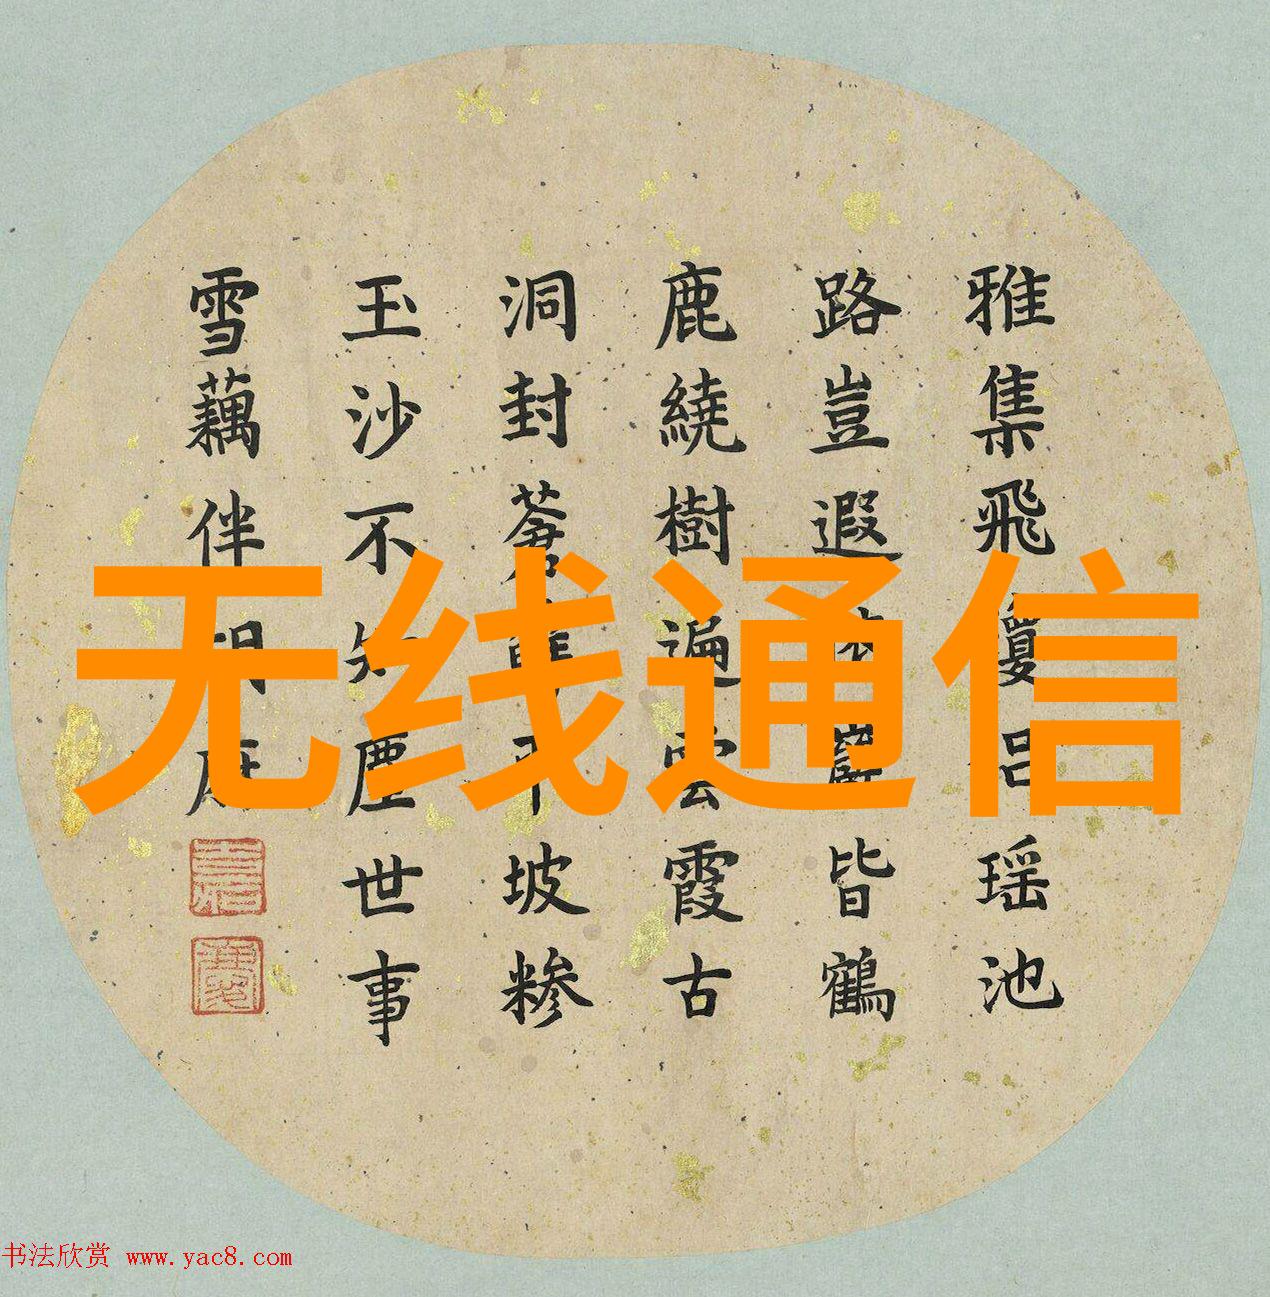 雅集飛瑶池
路豈遐皆鶴
鹿繞樹遍雲霞古
洞封蒼坡糁
玉沙不知塵世事
雪藕伴
无线通信
书法欣赏 www.yac8.com